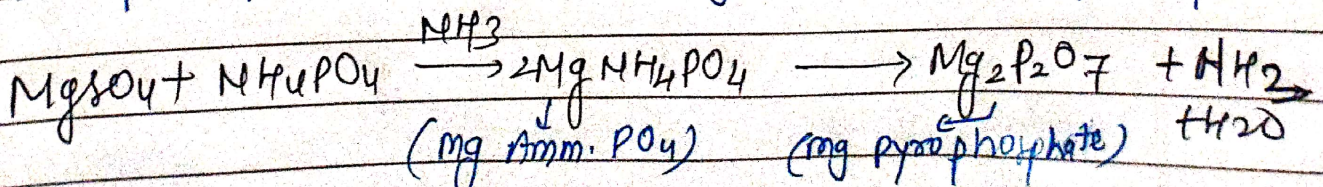 NH3
MgSO4 + NH4PO4 ⟶ 2MgNH4PO4 ⟶ Mg2P2O7 + NH3
+H2O
(Mg Amm. PO4) (Mg pyrophosphate)